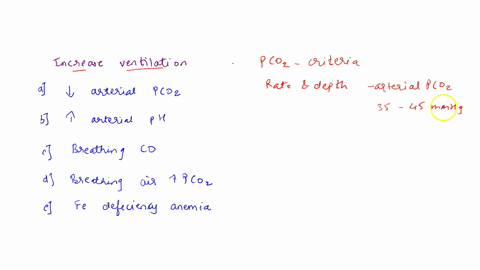 Increase ventilation
a] ↓ arterial PCO2
b] ↑ arterial pH
c] Breathing CO
d] Breathing air ↑ PCO2
e] Fe defeciency anemia
. PCO2 - criteria
Rate & depth - arterial PCO2
35 - 45 mmHg